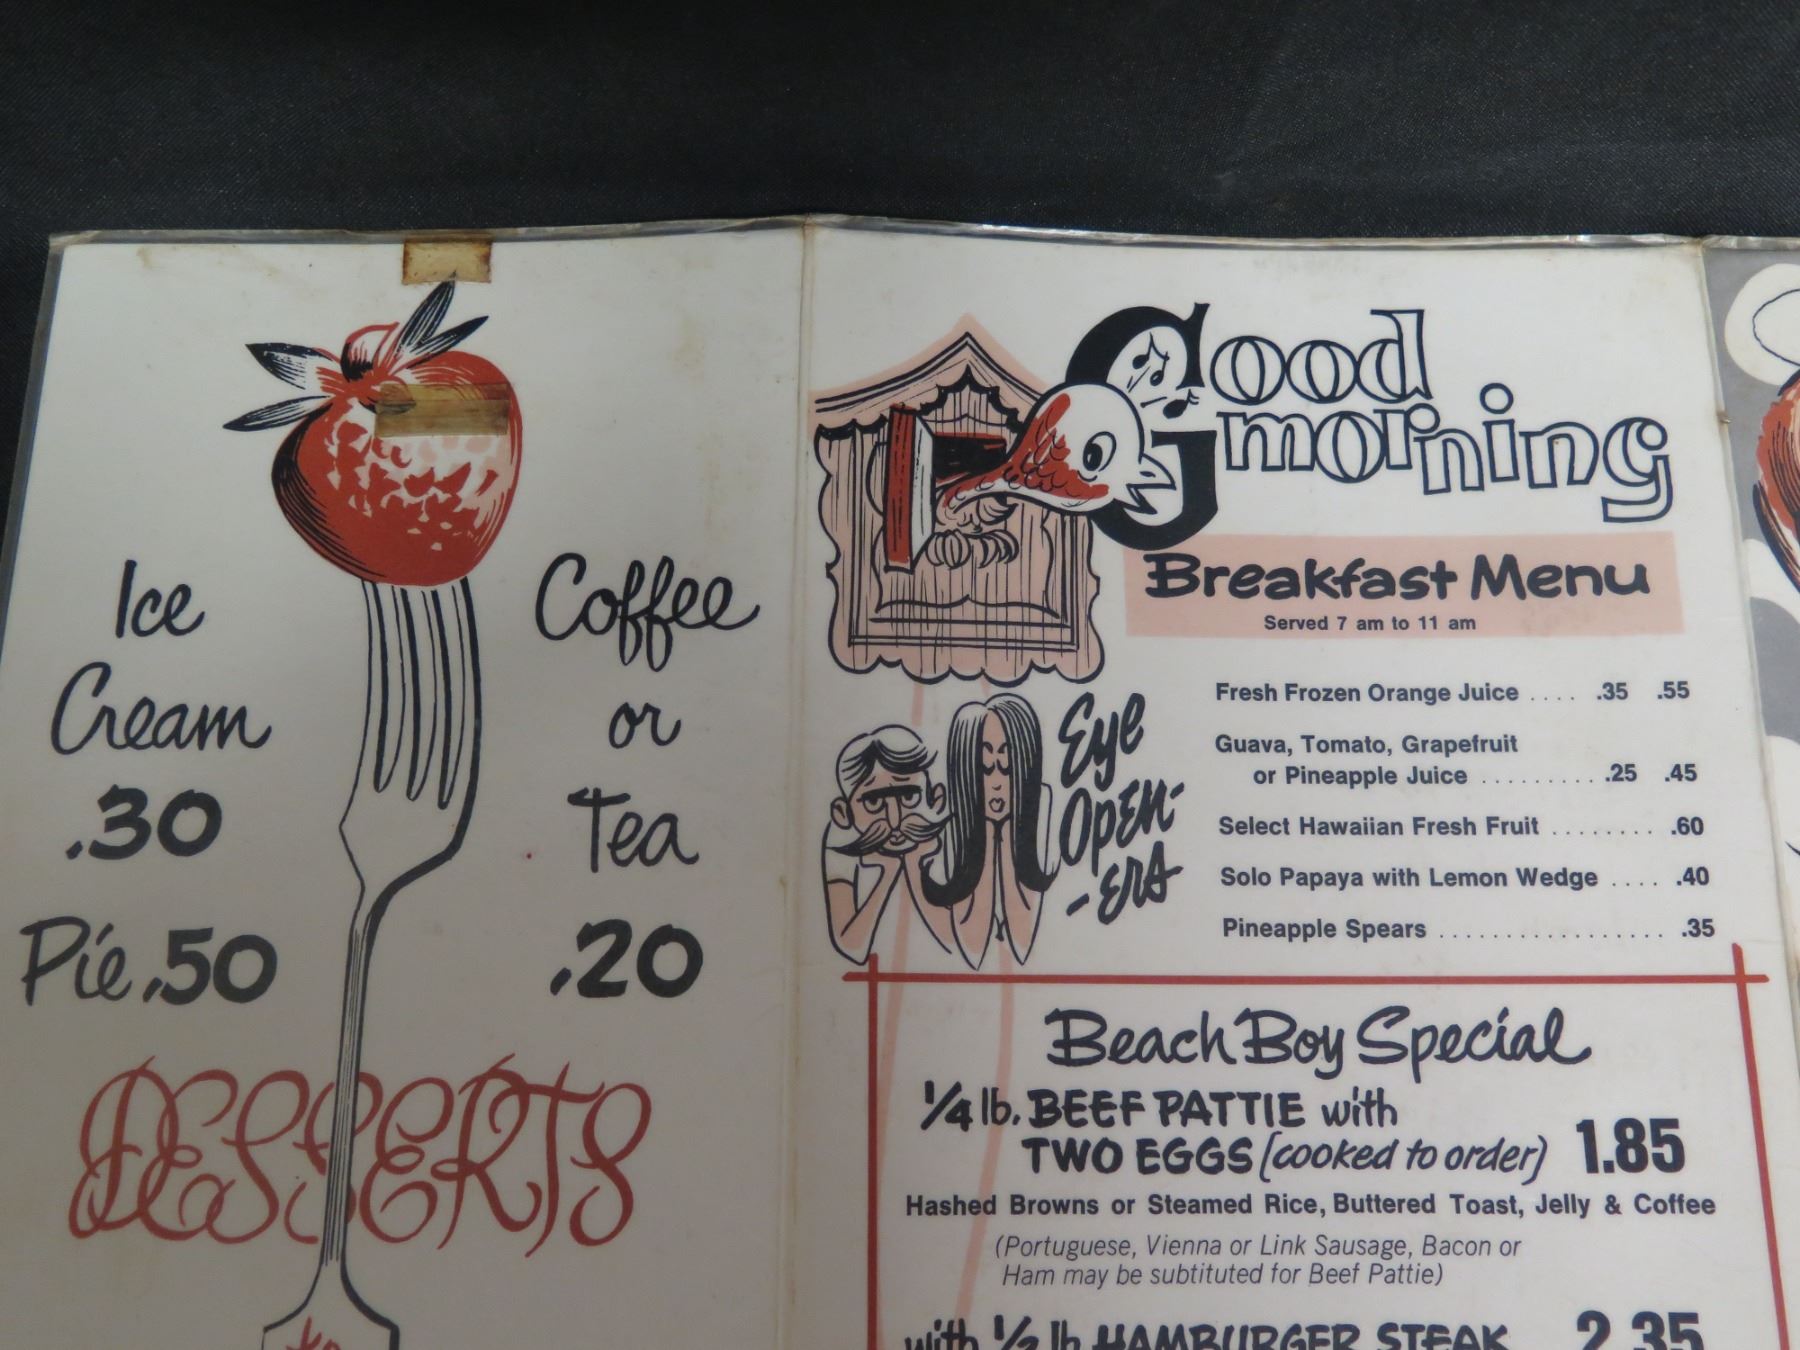 Ice
Cream
.30
Pie .50
Coffee
or
Tea
.20
DESSERTS
Good
morning
Breakfast Menu
Served 7 am to 11 am
Eye
OPEN-
-ERS
Fresh Frozen Orange Juice .... .35 .55
Guava, Tomato, Grapefruit
or Pineapple Juice .......... .25 .45
Select Hawaiian Fresh Fruit ........ .60
Solo Papaya with Lemon Wedge .... .40
Pineapple Spears ................. .35
Beach Boy Special
1/4 lb. BEEF PATTIE with
TWO EGGS (cooked to order) 1.85
Hashed Browns or Steamed Rice, Buttered Toast, Jelly & Coffee
(Portuguese, Vienna or Link Sausage, Bacon or
Ham may be subtituted for Beef Pattie)
with 1/2 lb HAMBURGER STEAK 2.35